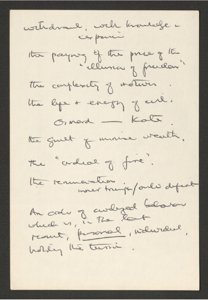 withdrawal, with knowledge -
the paying of the price of the
"illusion of freedom"
the complexity of nature.
the life & energy of evil.
Osmond — Kate
the guilt of immense wealth.
the "ordeal of fire".
the renunciation
inner triumph / outer defeat
An order of civilized behavior
which is, in the last
resort, personal, withdrawal,